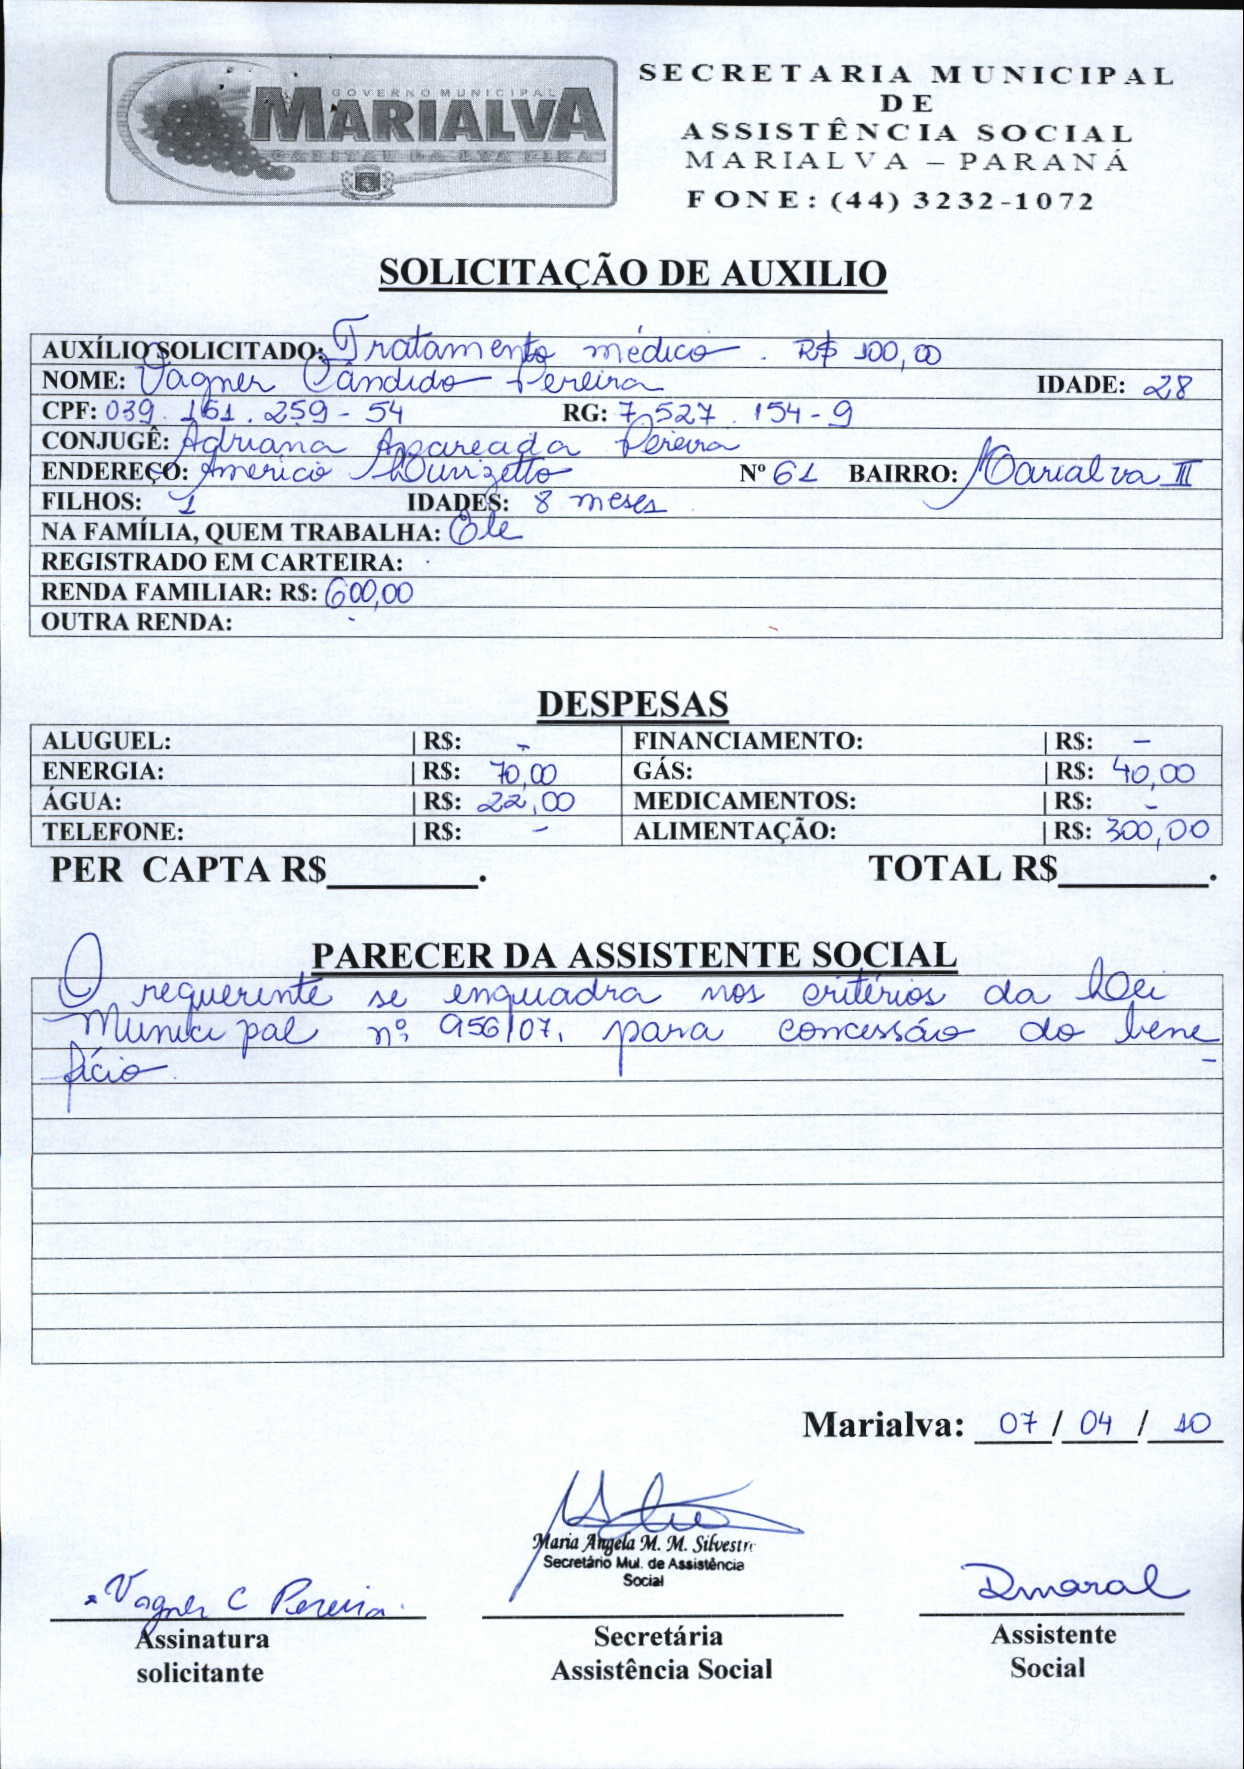 GOVERNO MUNICIPAL
MARIALVA
CAPITAL DA UVA FINA
SECRETARIA MUNICIPAL
DE
ASSISTÊNCIA SOCIAL
MARIALVA – PARANÁ
FONE: (44) 3232-1072
SOLICITAÇÃO DE AUXILIO
AUXÍLIO SOLICITADO: Tratamento médico. R$ 100,00
NOME: Vagner Cândido Pereira IDADE: 28
CPF: 039.161.259-54 RG: 7.527.154-9
CONJUGÊ: Adriana Aparecida Pereira
ENDEREÇO: Americo Nº 61 BAIRRO: Marialva II
FILHOS: 1 IDADES: 8 meses
NA FAMÍLIA, QUEM TRABALHA: Ele
REGISTRADO EM CARTEIRA: -
RENDA FAMILIAR: R$: 600,00
OUTRA RENDA: -
DESPESAS
ALUGUEL: | R$: - FINANCIAMENTO: | R$: -
ENERGIA: | R$: 70,00 GÁS: | R$: 40,00
ÁGUA: | R$: 22,00 MEDICAMENTOS: | R$: -
TELEFONE: | R$: - ALIMENTAÇÃO: | R$: 300,00
PER CAPTA R$________. TOTAL R$________.
PARECER DA ASSISTENTE SOCIAL
O requerente se enquadra nos critérios da Lei
Municipal nº 956/07, para concessão do bene-
fício.
Marialva: 07/04/10
Maria Angela M. M. Silvestre
Secretário Mul. de Assistência
Social
Vagner C Pereira. Dmaral
Assinatura Secretária Assistente
solicitante Assistência Social Social